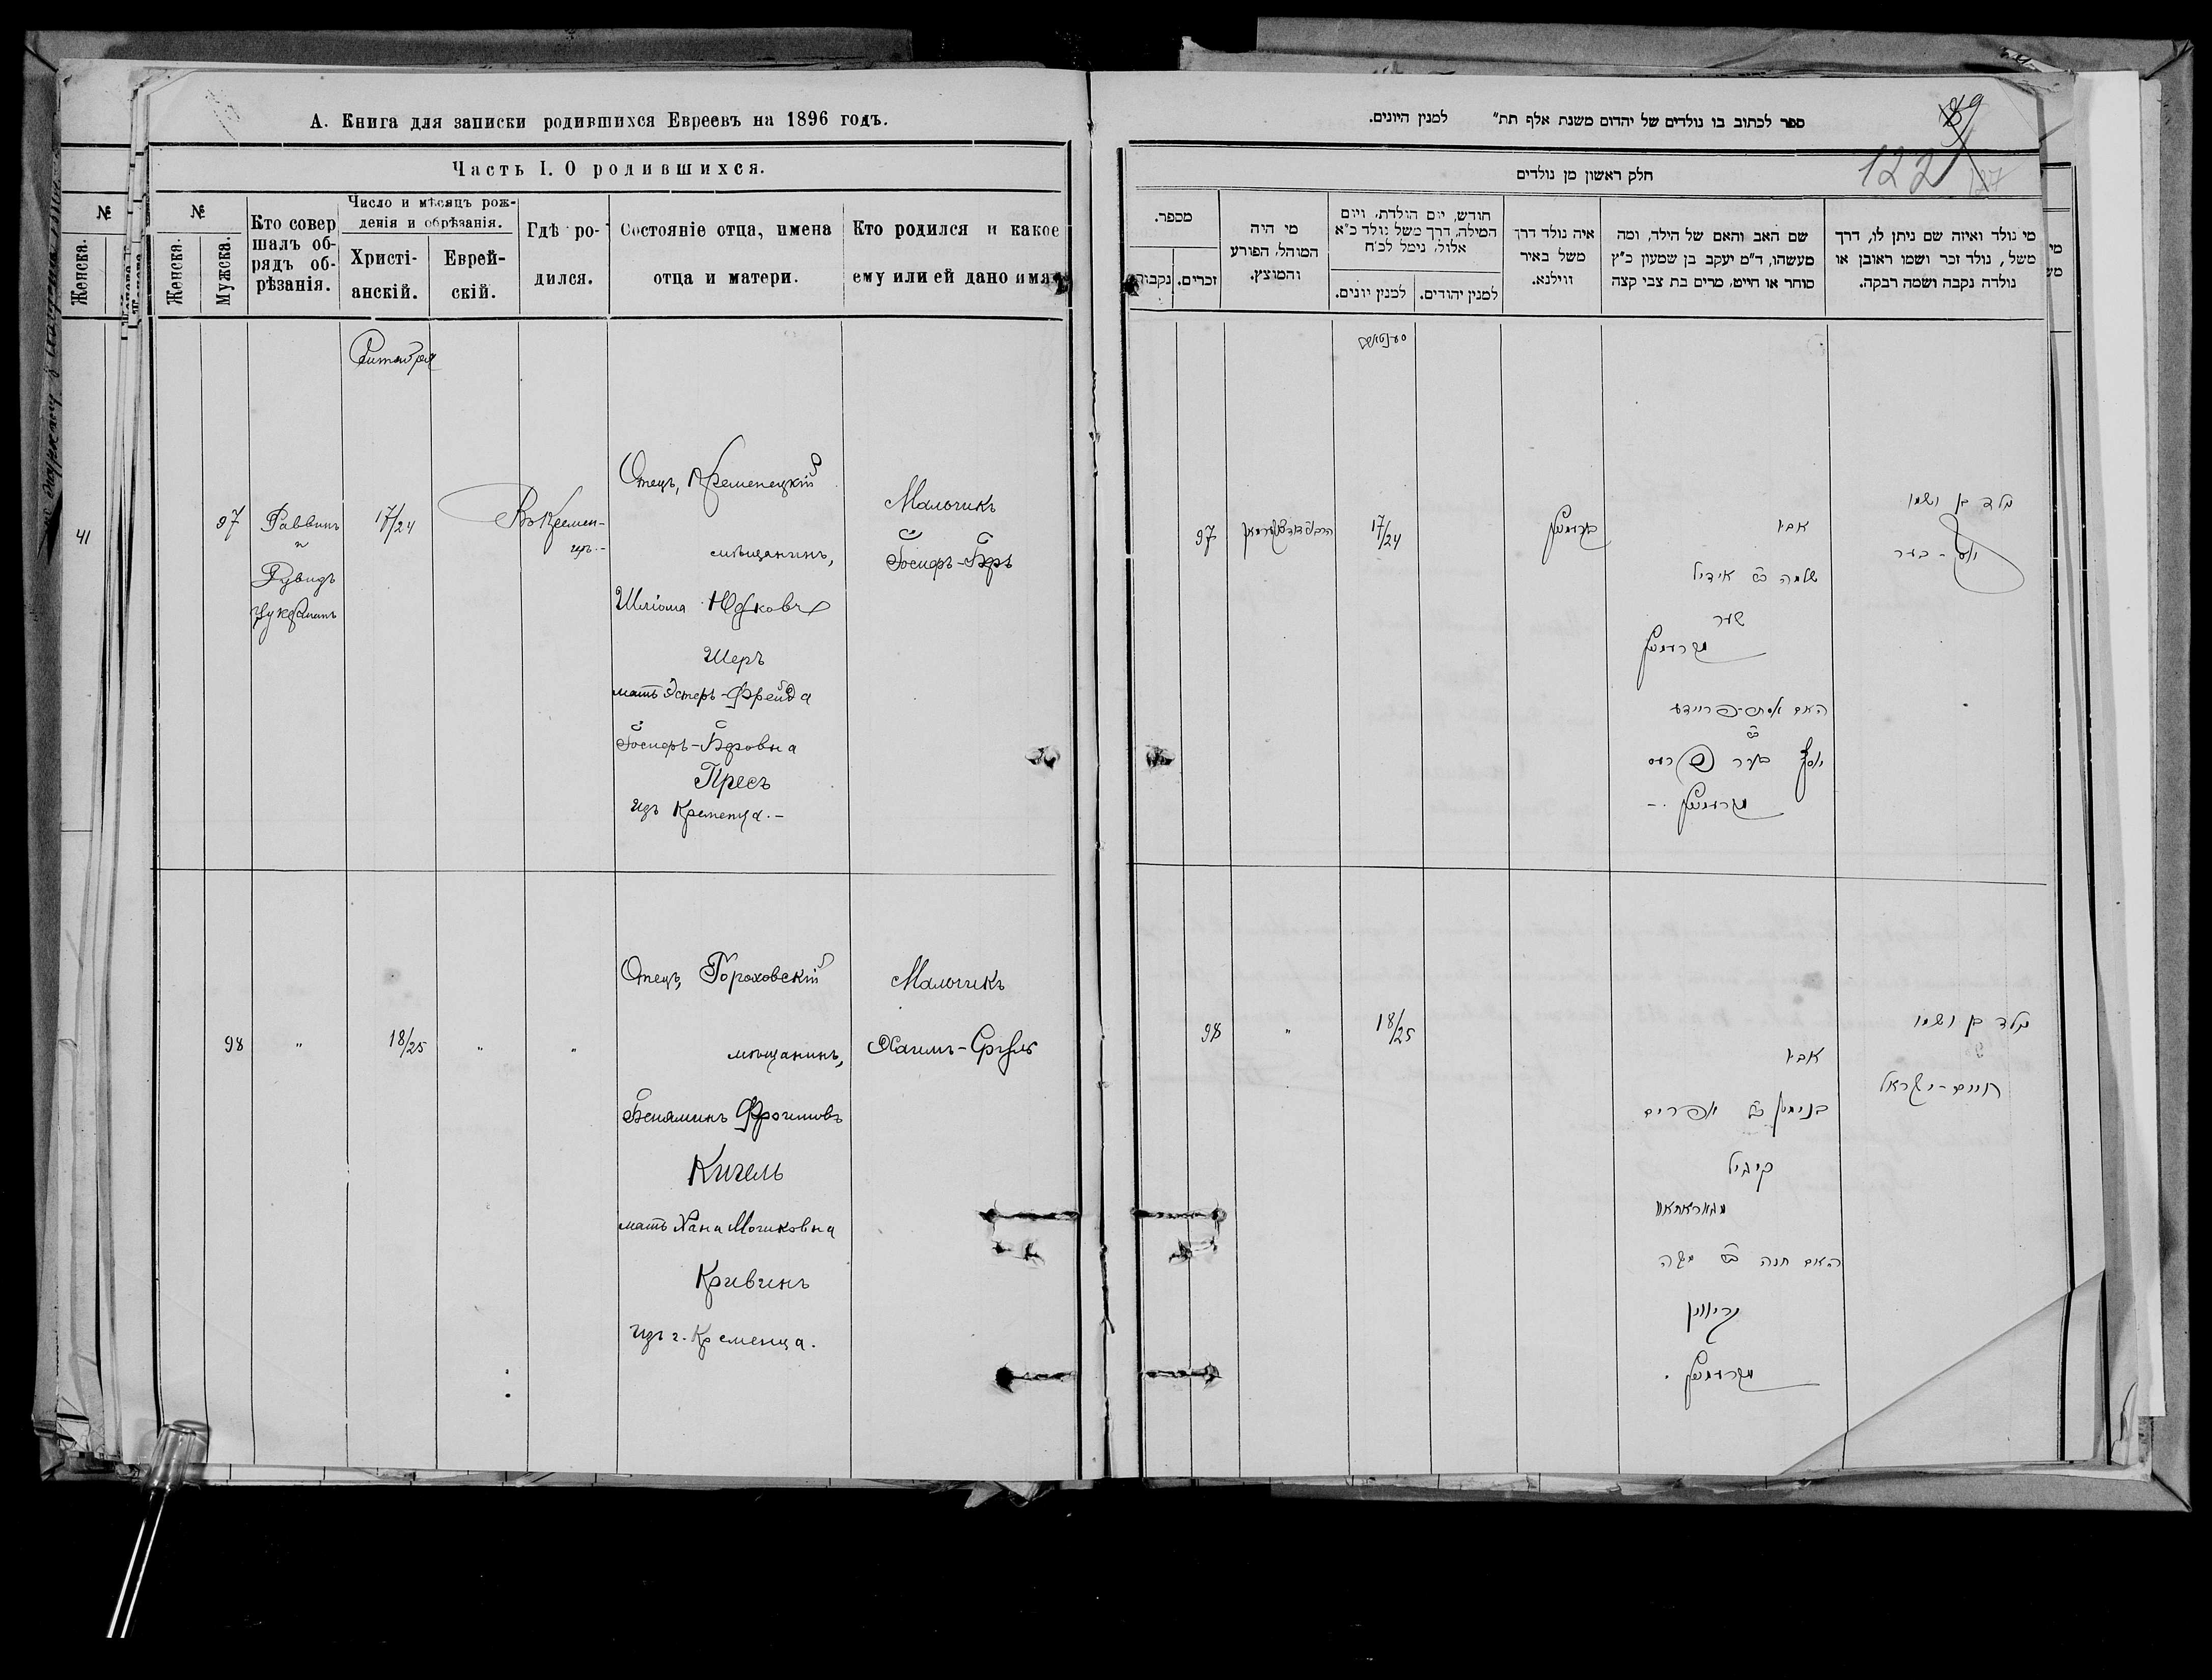 А. Книга для записки родившихся Евреевъ на 1896 годъ.
Часть I. О родившихся.
№
№
Женска.
Женска.
Мужска.
Кто совер
шалъ об-
рядъ об-
рѣзанія.
Число и мѣсяцъ рож-
денія и обрѣзанія.
Христі-
анскій.
Еврей-
скій.
Гдѣ ро-
дился.
Состояніе отца, имена
отца и матери.
Кто родился и какое
ему или ей дано имя
41
97
Раввинъ
и
Цукерманъ
17/24
Въ Кремен-
цѣ.-
Отецъ, Кременецкій
мѣщанинъ,
Шлiома Юдковъ
Шеръ
мать Эстеръ-Фрейда
Iосифъ-Беровна
Пресъ
изъ Кременца.-
Мальчикъ
Iосифъ-Беръ
98
"
18/25
"
"
Отецъ, Гороховскій
мѣщанинъ,
Беняминъ Фроимовъ
Кигель
мать Хана Мошковна
Кривинъ
изъ г. Кременца.
Мальчикъ
Хаимъ-Сруль
ספר לכתוב בו נולדים של יהדום משנת אלף תת״ למנין היונים.
89
122
127
חלק ראשון מן נולדים
מספר.
נקבות
זכרים.
מי היה
המוהל, הפורע
והמוצץ.
חודש, יום הולדת, ויום
המילה, דרך משל נולד כ״א
אלול, נימל לכ״ח
למנין יונים.
למנין יהודים.
איה נולד דרך
משל באיר
ווילנא.
שם האב והאם של הילד, ומה
מעשהו, ד״מ יעקב בן שמעון כ״ץ
סוחר או חייט, מרים בת צבי קצה
מי נולד ואיזה שם ניתן לו, דרך
משל, נולד זכר ושמו ראובן או
נולדה נקבה ושמה רבקה.
97
17/24
אביו
שלמה בר אידיל
שער
האם אסתר-פריידע
יוסף בער פרעס
נולד בן ושמו
יוסף-בער
98
"
18/25
אביו
בנימין בר אפרים
קיגיל
האם חנה בת משה
קריווין
נולד בן ושמו
חיים-ישראל